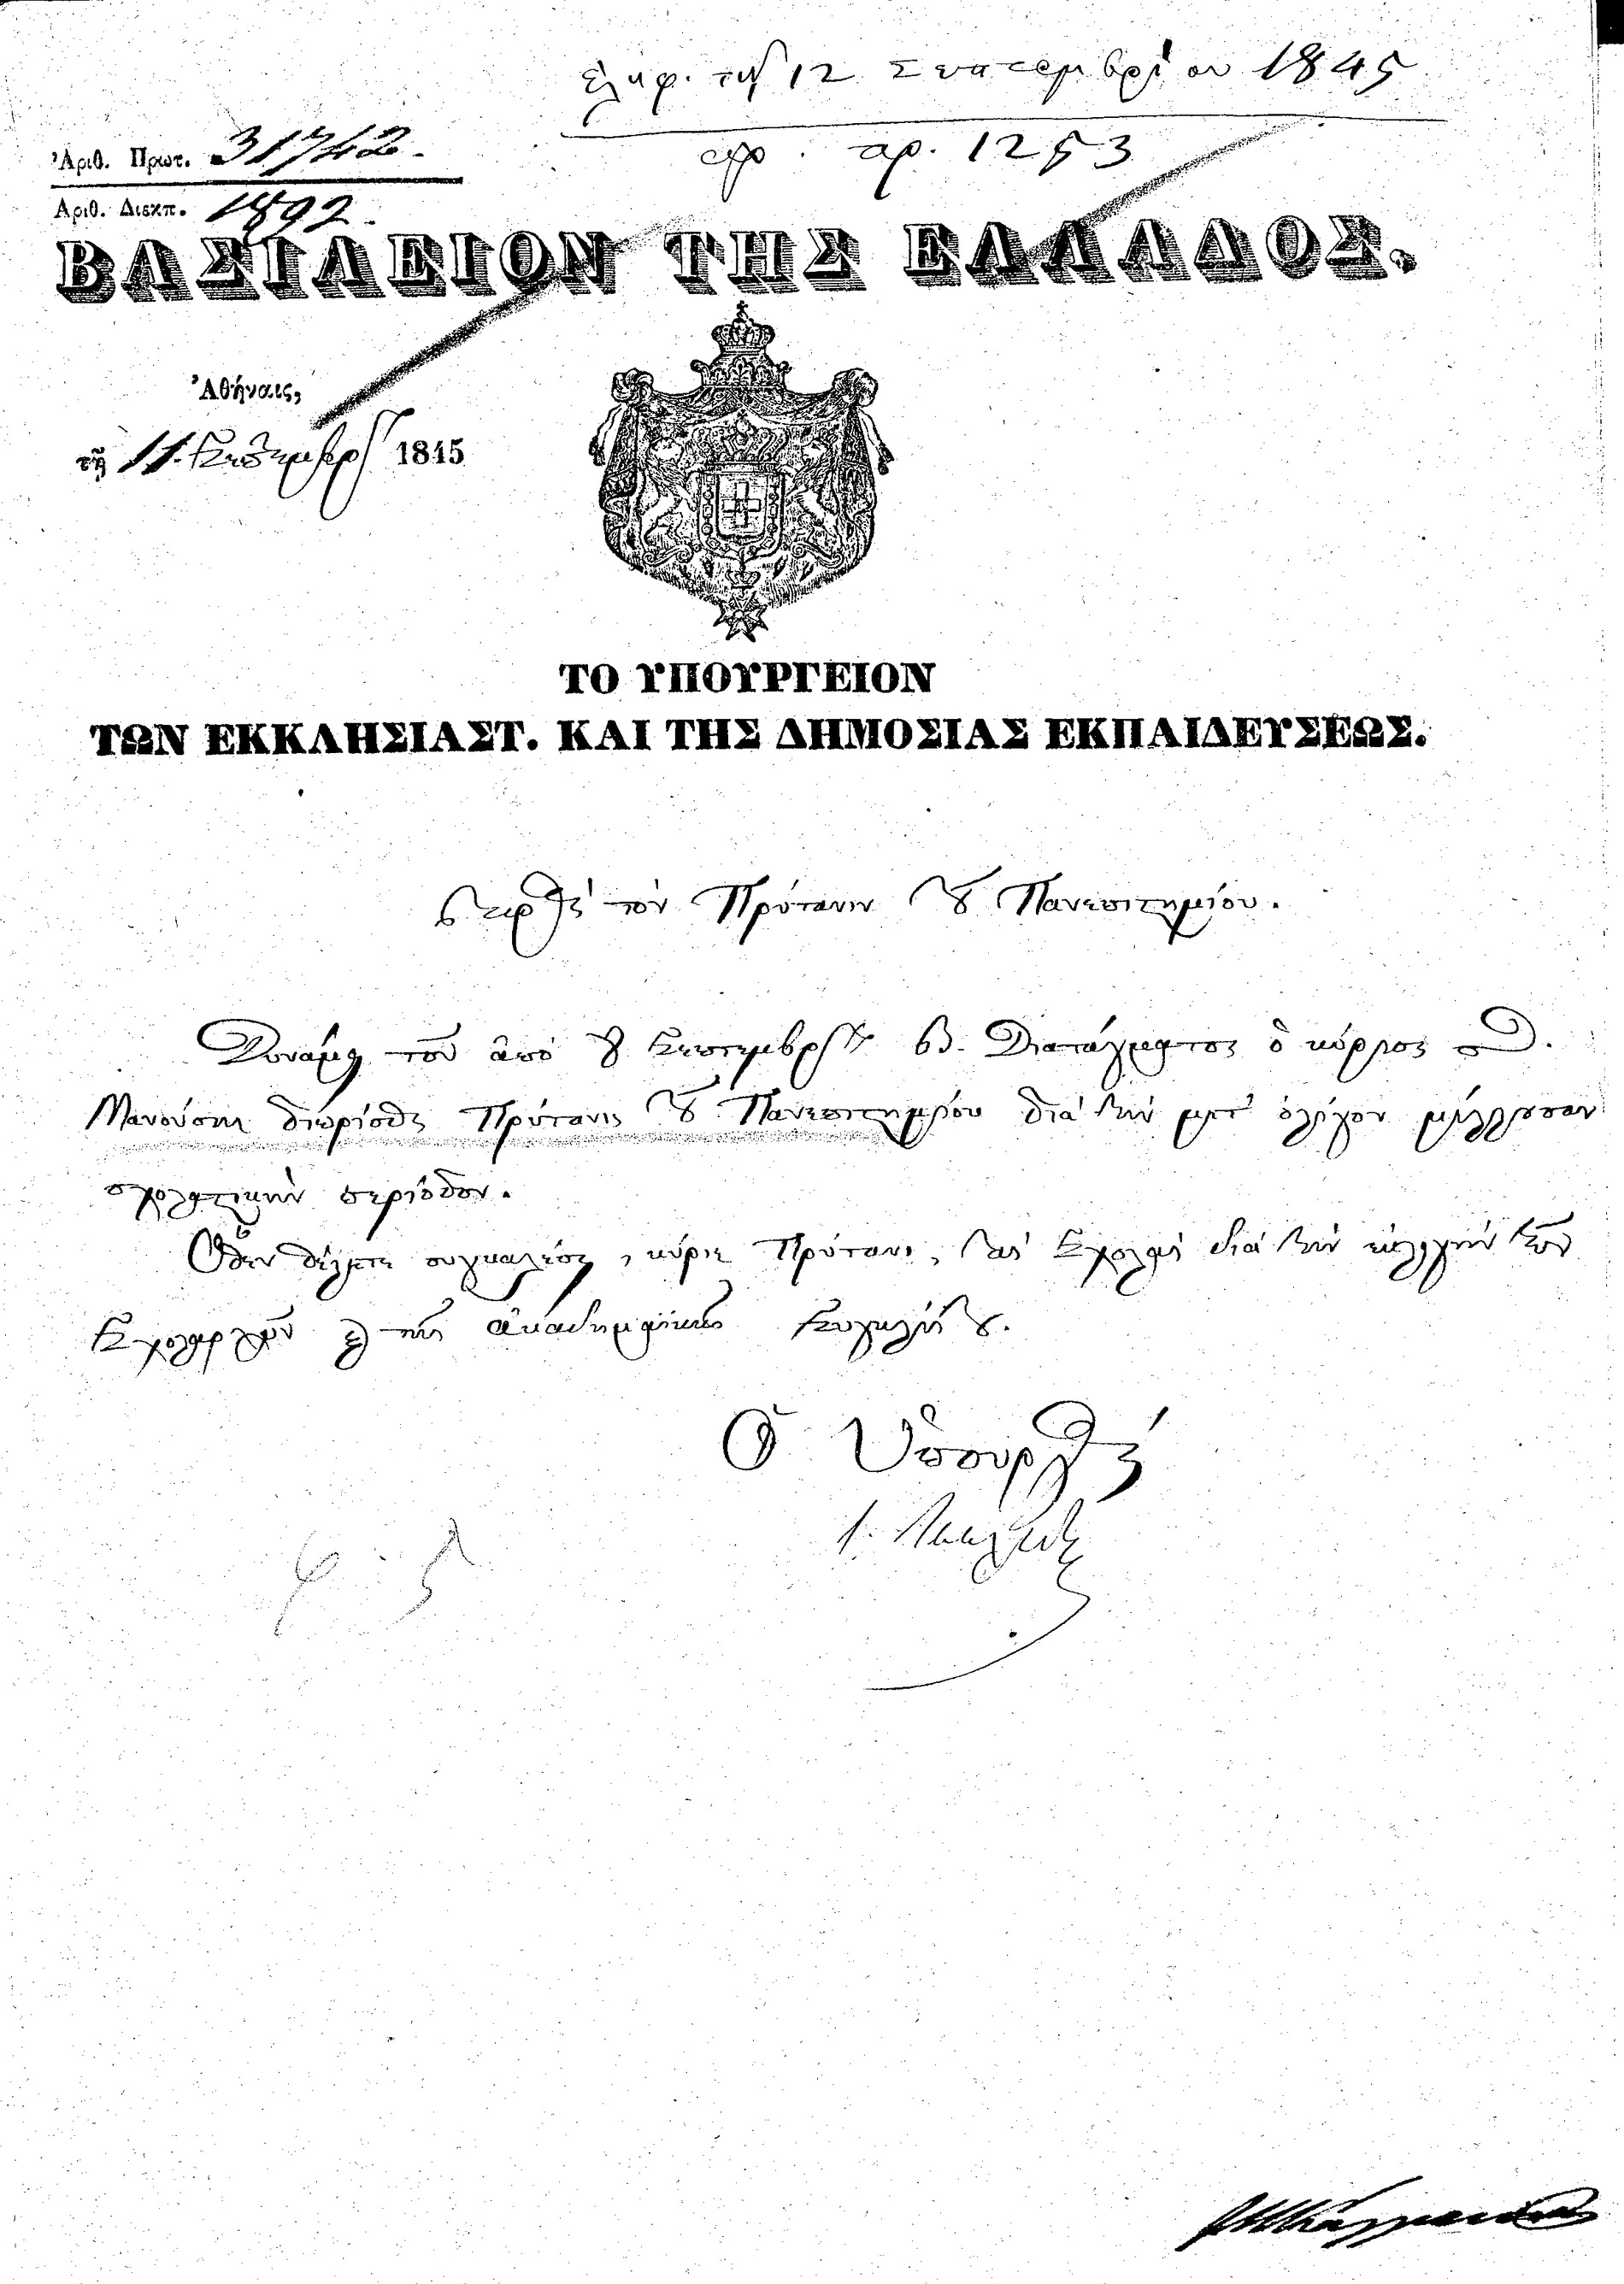 ἐλήφ. τῇ 12 Σεπτεμβρίου 1845
πρ. ἀρ. 1253
Ἀριθ. Πρωτ. 31742.
Ἀριθ. Διεκπ. 1892.
ΒΑΣΙΛΕΙΟΝ ΤΗΣ ΕΛΛΑΔΟΣ.
Ἀθήναις,
τῇ 11. Σεπτεμβρ 1845
ΤΟ ΥΠΟΥΡΓΕΙΟΝ
ΤΩΝ ΕΚΚΛΗΣΙΑΣΤ. ΚΑΙ ΤΗΣ ΔΗΜΟΣΙΑΣ ΕΚΠΑΙΔΕΥΣΕΩΣ.
Πρὸς τὸν Πρύτανιν τοῦ Πανεπιστημίου.
Δυνάμει τοῦ ἀπὸ Σεπτεμβρίου Β. Διατάγματος ὁ κύριος Θ.
Μανούσης διωρίσθη Πρύτανις τοῦ Πανεπιστημίου διὰ τὴν μετ' ὀλίγον μέλλουσαν
σχολαστικὴν περίοδον.
Ὅθεν θέλετε συγκαλέσει, κύριε Πρύτανι, τὰς Σχολὰς διὰ τὴν ἐκλογὴν τῶν
Σχολαρχῶν καὶ τῆς ἀκαδημαϊκῆς Συγκλήτου.
Ὁ Ὑπουργὸς